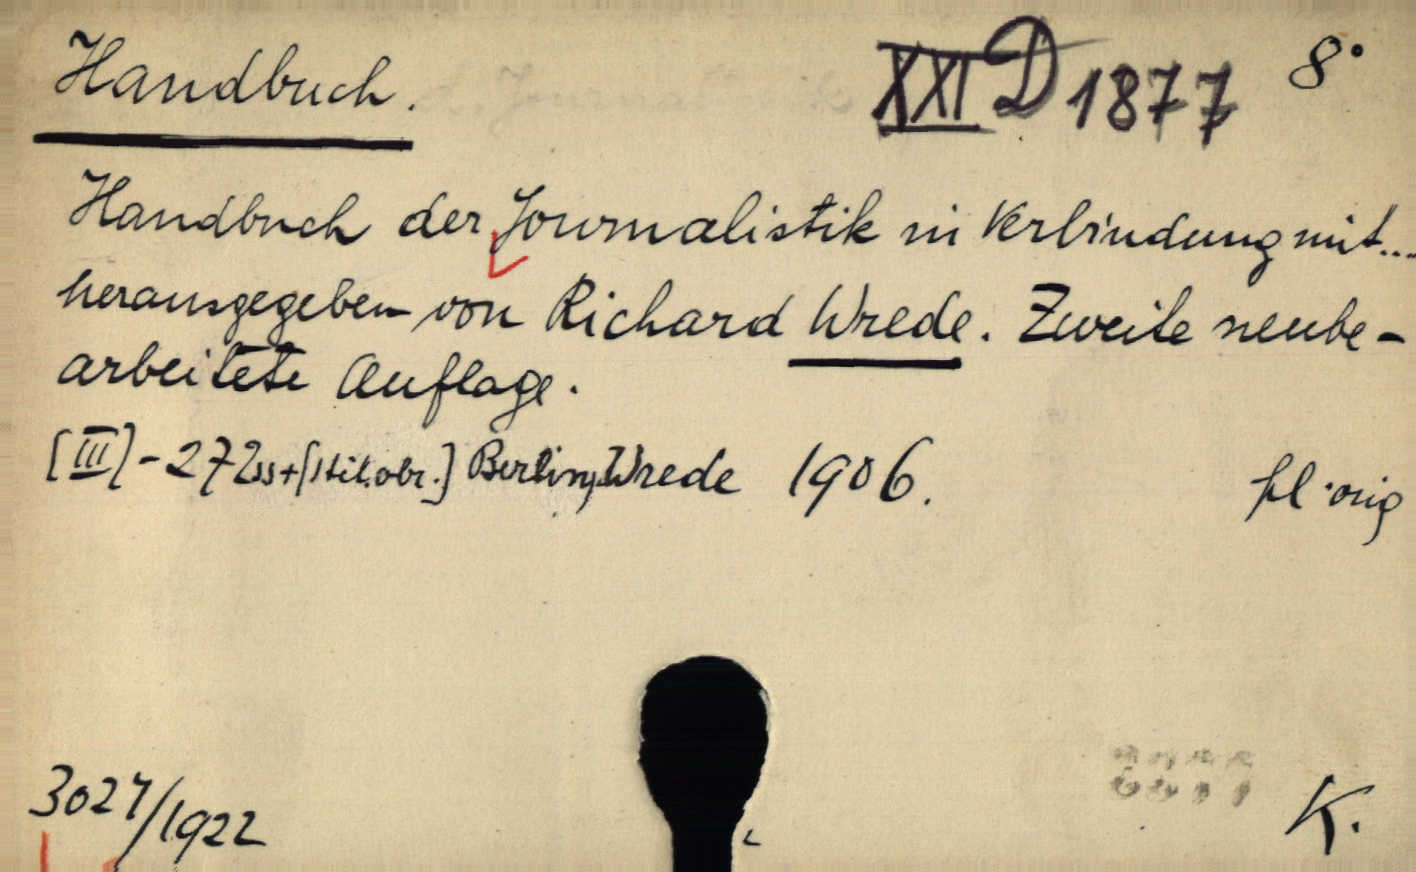 Handbuch.
XXI D 1877 8°
Handbuch der Journalistik in Verbindung mit...
herausgegeben von Richard Wrede. Zweite neube-
arbeitete Auflage.
[III]-272ss+[1tit.obr.] Berlin, Wrede 1906.
pl. orig
3027/1922
K.